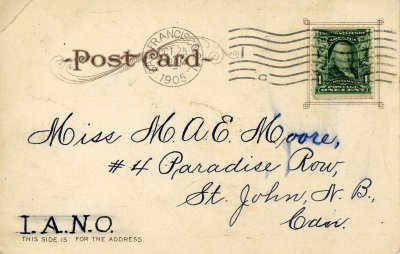 Post Card
SAN FRANCISCO
1905
1 1
POSTAGE
ONE CENT
Miss M. A. E. Moore,
#4 Paradise Row,
St. John, N. B.,
Can.
I.A.N.O.
THIS SIDE IS FOR THE ADDRESS